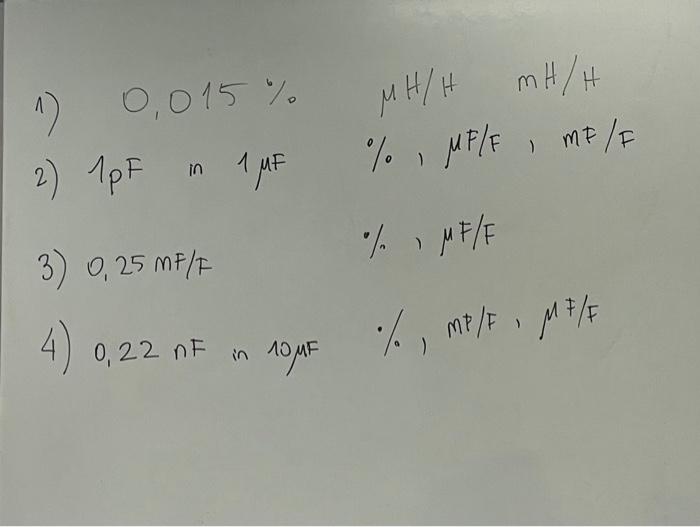 1) 0,015 % μH/H mH/H
2) 1pF in 1 μF %, μF/F, mF/F
3) 0,25 mF/F %, μF/F
4) 0,22 nF in 10μF %, mF/F, μF/F